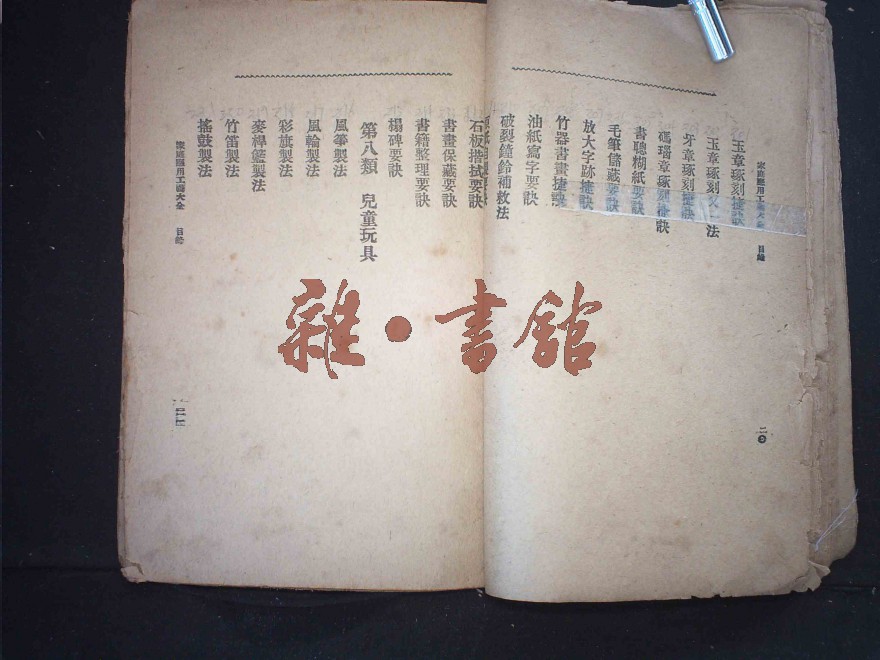 家庭應用工藝大全 目錄
二〇
玉章琢刻捷訣
玉章琢刻又一法
牙章琢刻捷訣
瑪瑙章琢刻捷訣
書聯糊紙要訣
毛筆儲藏要訣
放大字跡捷訣
竹器書畫捷訣
油紙寫字要訣
破裂鐘鈴補救法
石板揩拭要訣
書畫保藏要訣
書籍整理要訣
搨碑要訣
第八類 兒童玩具
風箏製法
風輪製法
彩旗製法
麥桿籃製法
竹笛製法
搖鼓製法
家庭應用工藝大全 目錄
雜·書館